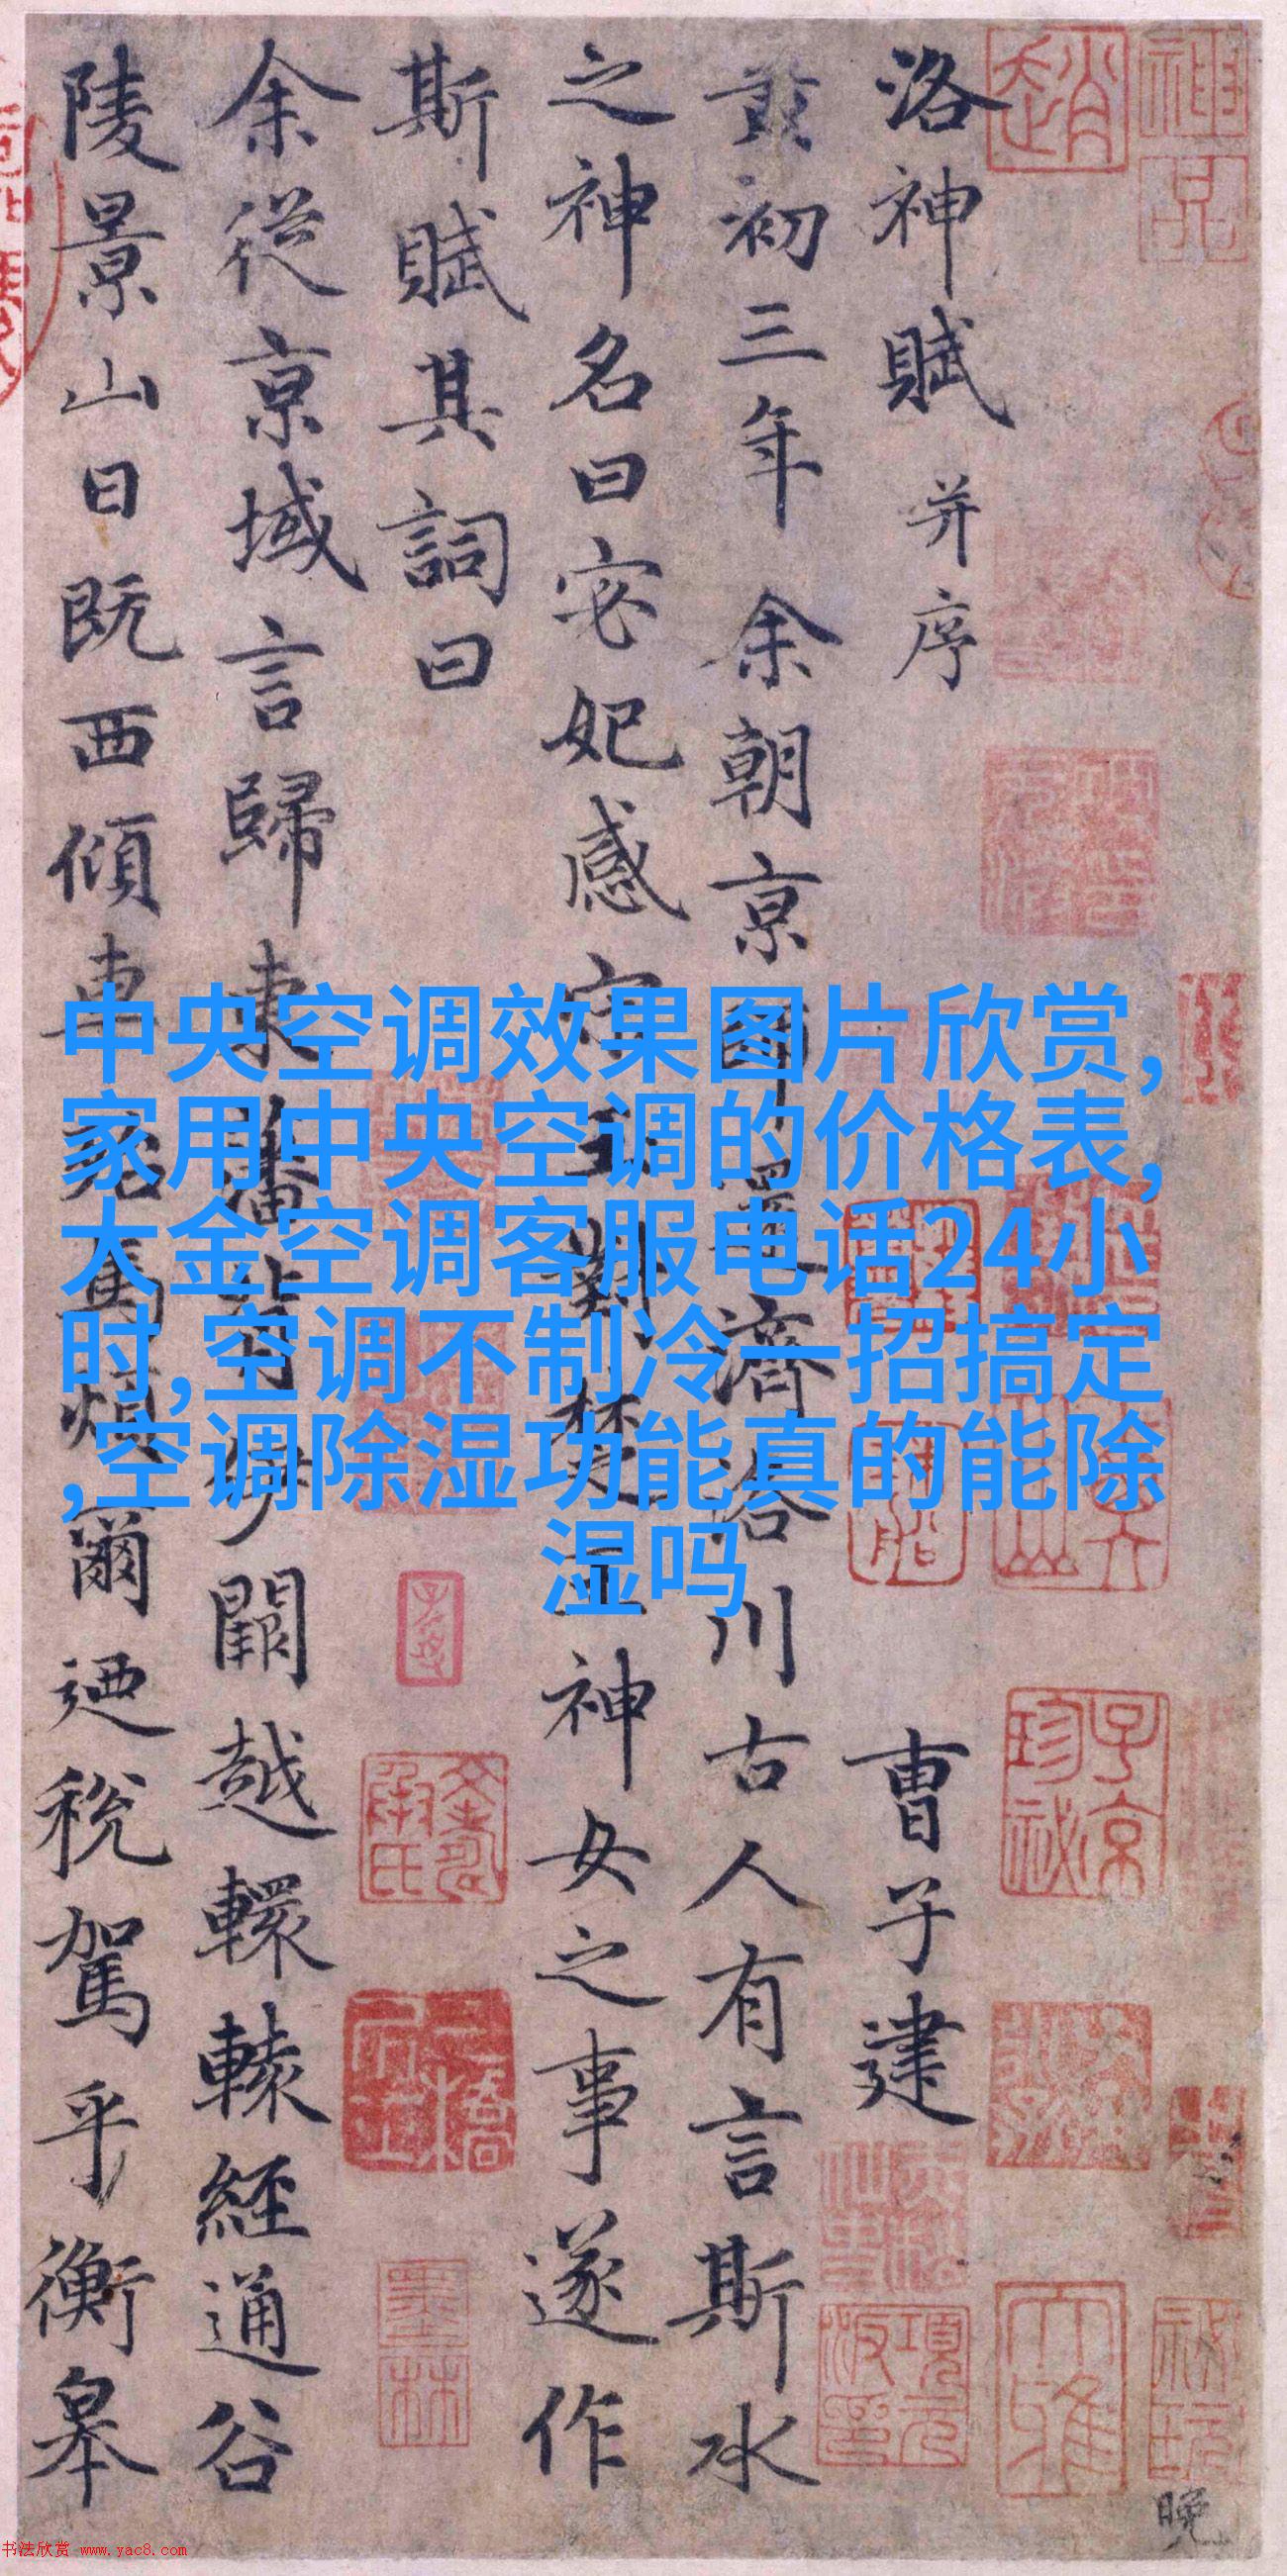 洛神賦 并序 曹子建
黃初三年余朝京師還濟洛川古人有言斯水
之神名曰宓妃感宋玉對楚王神女之事遂作
斯賦其詞曰
余從京域言歸東藩背伊闕越轘轅經通谷
陵景山日既西傾車殆馬煩爾迺稅駕乎衡皋
中央空调效果图片欣赏,
家用中央空调的价格表,
大金空调客服电话24小
时,空调不制冷一招搞定
,空调除湿功能真的能除
湿吗
子京珍祕
項元汴印
墨林
晚
书法欣赏 www.yac8.com